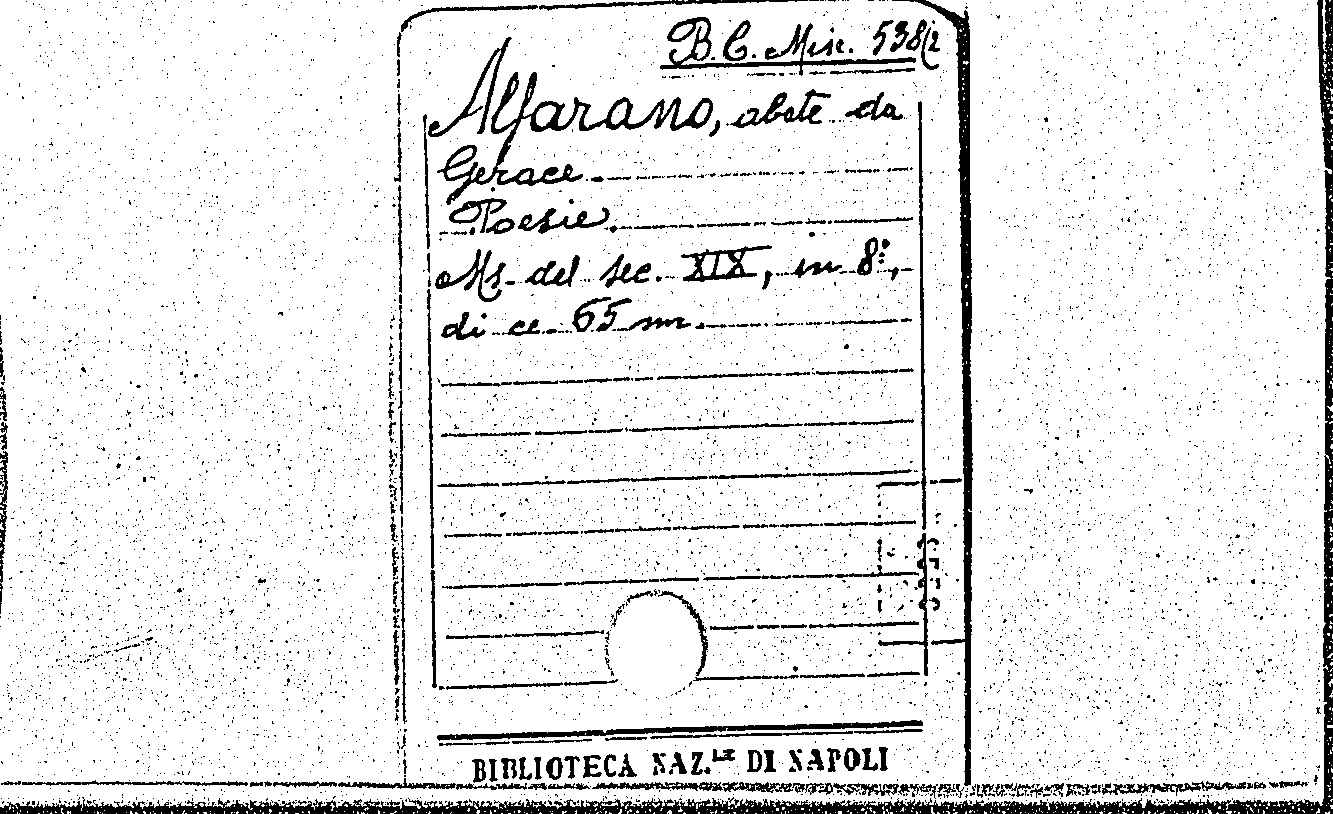 B.C. Misc. 538/2
Alfarano, abate da
Gerace.
Poesie.
Ms. del sec. XIX, in 8º,
di cc. 65 nn.
BIBLIOTECA NAZ.LE DI NAPOLI